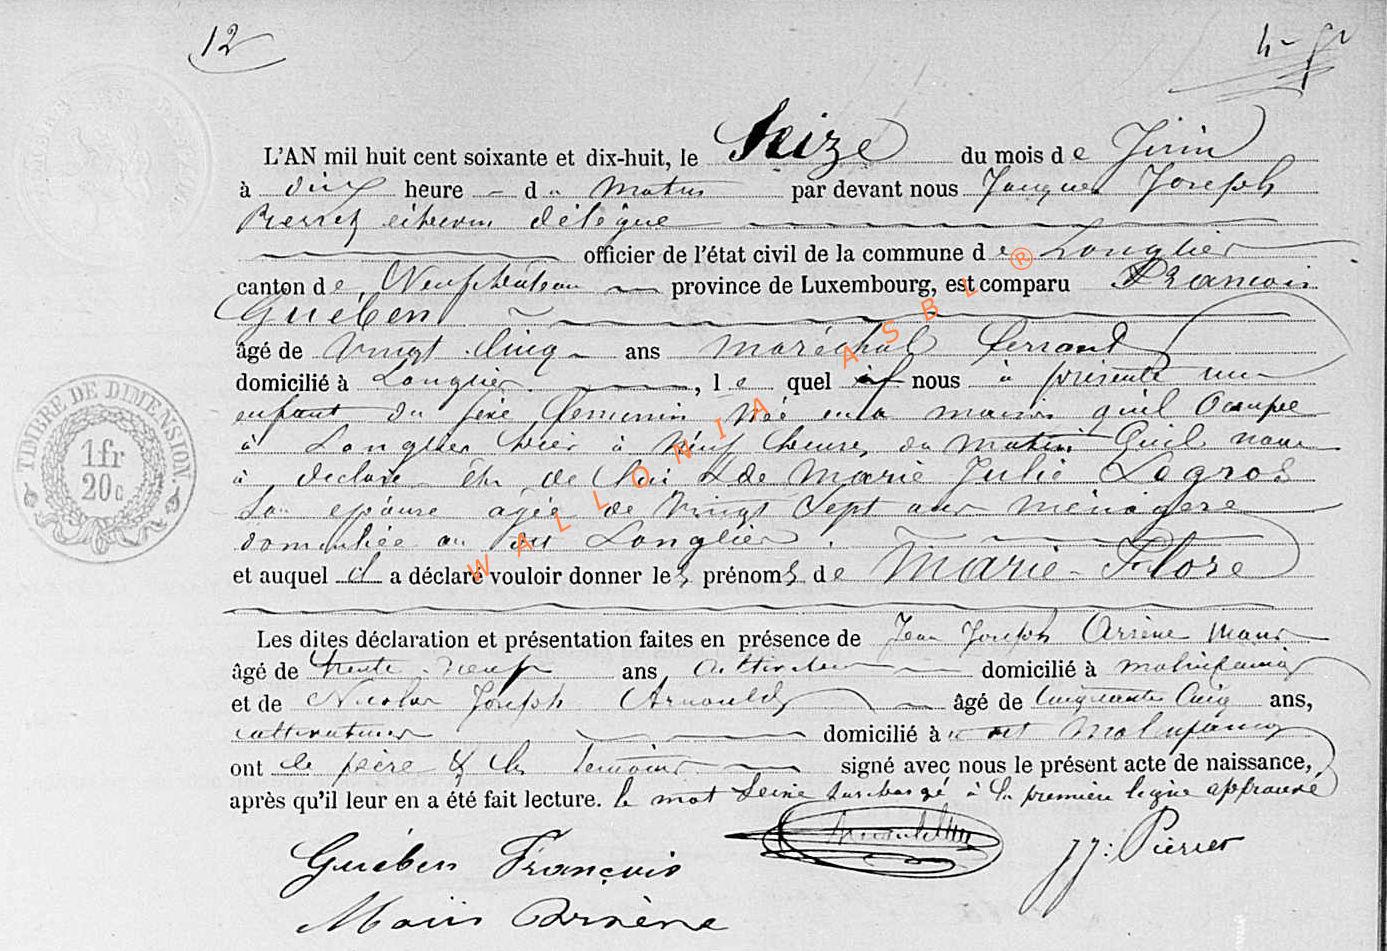 12
TIMBRE DE DIMENSION.
1fr
20c
L'AN mil huit cent soixante et dix-huit, le Seize du mois de Juin
à dix heure du matin par devant nous Jacques Joseph
Pierret échevin délégué
officier de l'état civil de la commune de Longlier
canton de Neufchâteau province de Luxembourg, est comparu François
Guében
âgé de vingt cinq ans maréchal ferrant
domicilié à Longlier, le quel nous à présenté un
enfant du sexe femenin née en la maison quil ocupe
à Longlier hier à neuf heure du matin Quil nous
à declaré être de lui & de Marie Julie Legros
Son epouse agée de vingt Sept ans ménagere
domiciliée au dit Longlier.
et auquel il a déclaré vouloir donner les prénoms de Marie-Flore
Les dites déclaration et présentation faites en présence de Jean Joseph Arsène Maus
âgé de trente-neuf ans domicilié à molinfaing
et de Nicolas Joseph Arnould âgé de Cinquante Cinq ans,
cultivateur domicilié à Molinfaing
ont le père & les temoins signé avec nous le présent acte de naissance,
après qu'il leur en a été fait lecture. le mot Seize surchargé à la première ligne approuvé
Guében François
JJ: Pierret
Maus Arsène
WALLONIA ASBL ®